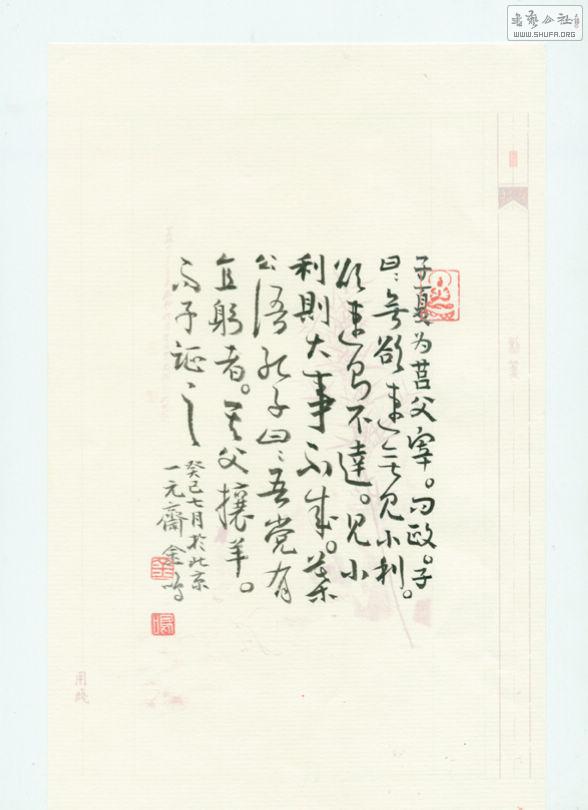 子夏为莒父宰。问政。子
曰：无欲速无见小利。
欲速则不達。见小
利則大事不成。葉
公语孔子曰：吾党有
直躬者。其父攘羊。
而子证之
癸巳七月於北京
一元齋金鸣
書法公社
WWW.SHUFA.ORG
用笺